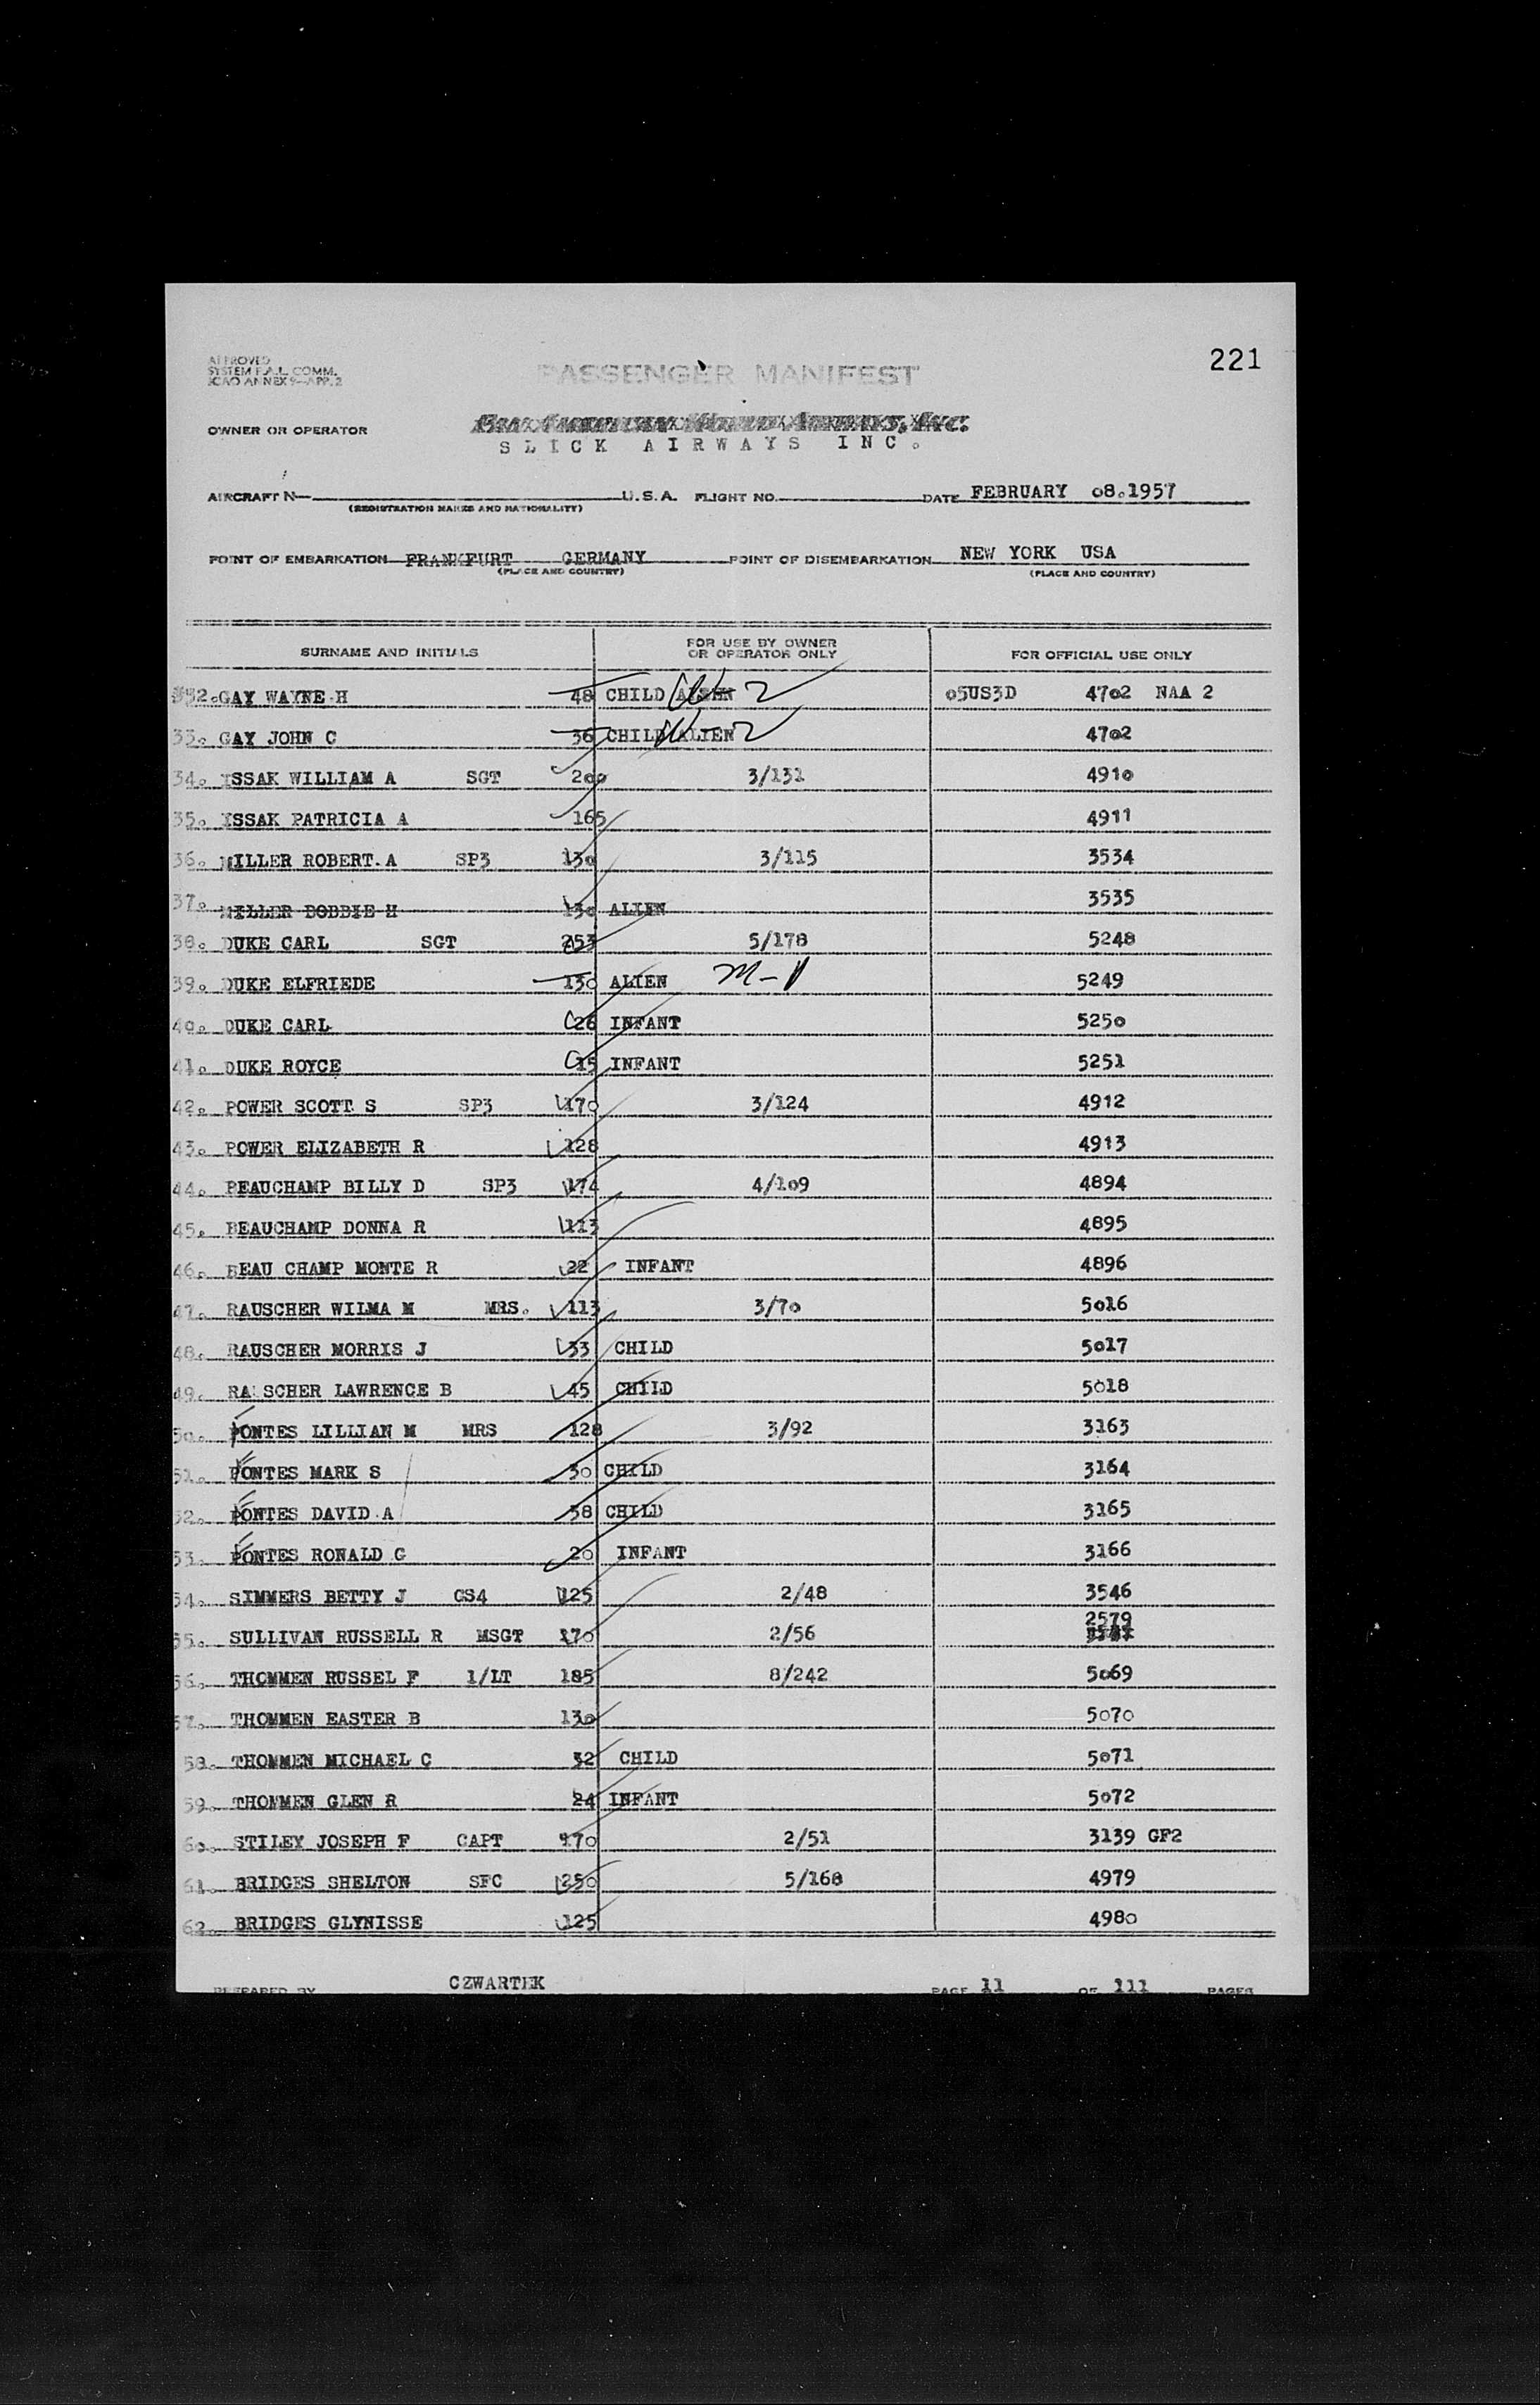 221
APPROVED
SYSTEM F.A.L. COMM.
ICAO ANNEX 9—APP. 2
PASSENGER MANIFEST
OWNER OR OPERATOR
SLICK AIRWAYS INC.
AIRCRAFT N— U.S.A. FLIGHT NO. DATE FEBRUARY 08.1957
(REGISTRATION MARKS AND NATIONALITY)
POINT OF EMBARKATION FRANKFURT GERMANY POINT OF DISEMBARKATION NEW YORK USA
(PLACE AND COUNTRY) (PLACE AND COUNTRY)
SURNAME AND INITIALS FOR USE BY OWNER OR OPERATOR ONLY FOR OFFICIAL USE ONLY
32. GAY WAYNE H 48 CHILD ALIEN 2 05US3D 4702 NAA 2
33. GAY JOHN C 36 CHILD ALIEN 2 4702
34. ISSAK WILLIAM A SGT 200 3/131 4910
35. ISSAK PATRICIA A 165 4911
36. MILLER ROBERT.A SP3 130 3/115 3534
37. MILLER BOBBIE H 130 ALIEN 3535
38. DUKE CARL SGT 253 5/178 5248
39. DUKE ELFRIEDE 130 ALIEN M-1 5249
40. DUKE CARL 26 INFANT 5250
41. DUKE ROYCE 15 INFANT 5251
42. POWER SCOTT S SP3 170 3/124 4912
43. POWER ELIZABETH R 128 4913
44. BEAUCHAMP BILLY D SP3 174 4/109 4894
45. BEAUCHAMP DONNA R 113 4895
46. BEAU CHAMP MONTE R 22 INFANT 4896
47. RAUSCHER WILMA M MRS. 113 3/70 5016
48. RAUSCHER MORRIS J 33 CHILD 5017
49. RAUSCHER LAWRENCE B 45 CHILD 5018
50. PONTES LILLIAN M MRS 128 3/92 3163
51. PONTES MARK S 30 CHILD 3164
52. PONTES DAVID A 38 CHILD 3165
53. PONTES RONALD G 20 INFANT 3166
54. SIMMERS BETTY J GS4 125 2/48 3546
55. SULLIVAN RUSSELL R MSGT 170 2/56 2579
56. THOMMEN RUSSEL F 1/LT 185 8/242 5069
57. THOMMEN EASTER B 130 5070
58. THOMMEN MICHAEL C 32 CHILD 5071
59. THOMMEN GLEN R 24 INFANT 5072
60. STILEY JOSEPH F CAPT 170 2/51 3139 GF2
61. BRIDGES SHELTON SFC 250 5/168 4979
62. BRIDGES GLYNISSE 125 4980
PREPARED BY CZWARTEK PAGE 11 OF 111 PAGES